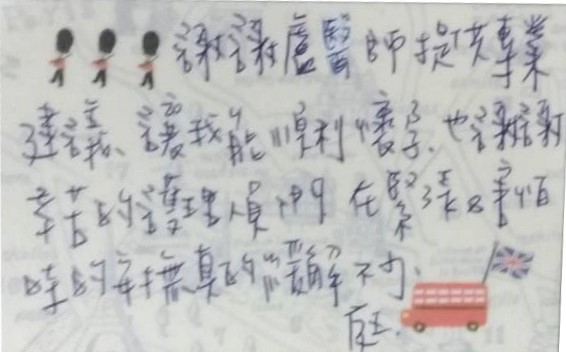 謝謝盧醫師提供專業
建議、讓我能順利懷子、也謝謝
辛苦的護理人員們在緊張
時的安撫真的不少、
庭.